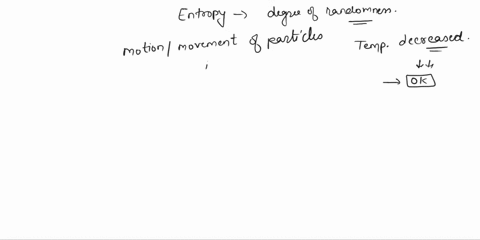 Entropy → degree of randomness.
Motion / movement of particles
Temp. decreased.
↓↓
→ OK